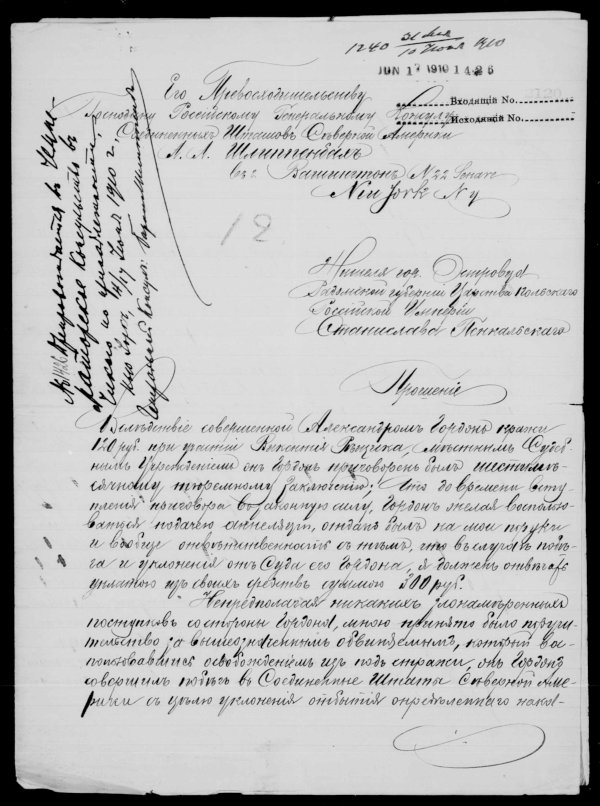 1240 31 Мая
10 Июня 1910
JUN 17 1910 1426
Входящій No.
Исходящій No.
Его Превосходительству
Господину Россійскому Генеральному Консулу
Соединенныхъ Штатовъ Сѣверной Америки
Шлиппенбахъ
въ Вашингтонъ N 22
New York Ny
12
Жителя гор.
Радомской губерніи Царства Польскаго
Россійской Имперіи
Станислава Пенкальскаго
Прошеніе
Вслѣдствіе совершенной Александромъ Гордонъ кражи
120 руб. при участіи Викентія, мѣстнымъ Судеб-
нымъ Учрежденіемъ онъ Гордонъ приговоренъ былъ шестимѣ-
сячному тюремному заключенію; но до времени всту-
пленія приговора въ законную силу, Гордонъ желая восполь-
зоваться подачею аппеляціи, отданъ былъ на мои поруки
и вообще отвѣтственность съ тѣмъ, что въ случаѣ побѣ-
га и уклоненія отъ Суда его Гордона, я долженъ отвѣчать
уплатою изъ своихъ средствъ суммою 300 руб.
Непредполагая никакихъ злонамѣренныхъ
поступковъ со стороны Гордона, мною принято было поручи-
тельство за вышеозначеннымъ обвиняемымъ, который вос-
пользовавшись освобожденіемъ изъ подъ стражи, онъ Гордонъ
совершилъ побѣгъ въ Соединенные Штаты Сѣверной Аме-
рики съ цѣлью уклоненія отбытія опредѣленнаго нака-
№ 1426 Препровождается въ
Консульство въ
по принадлежности,
Нью Іоркъ, 4/17 Іюня 1910 г.,
Генеральный Консулъ